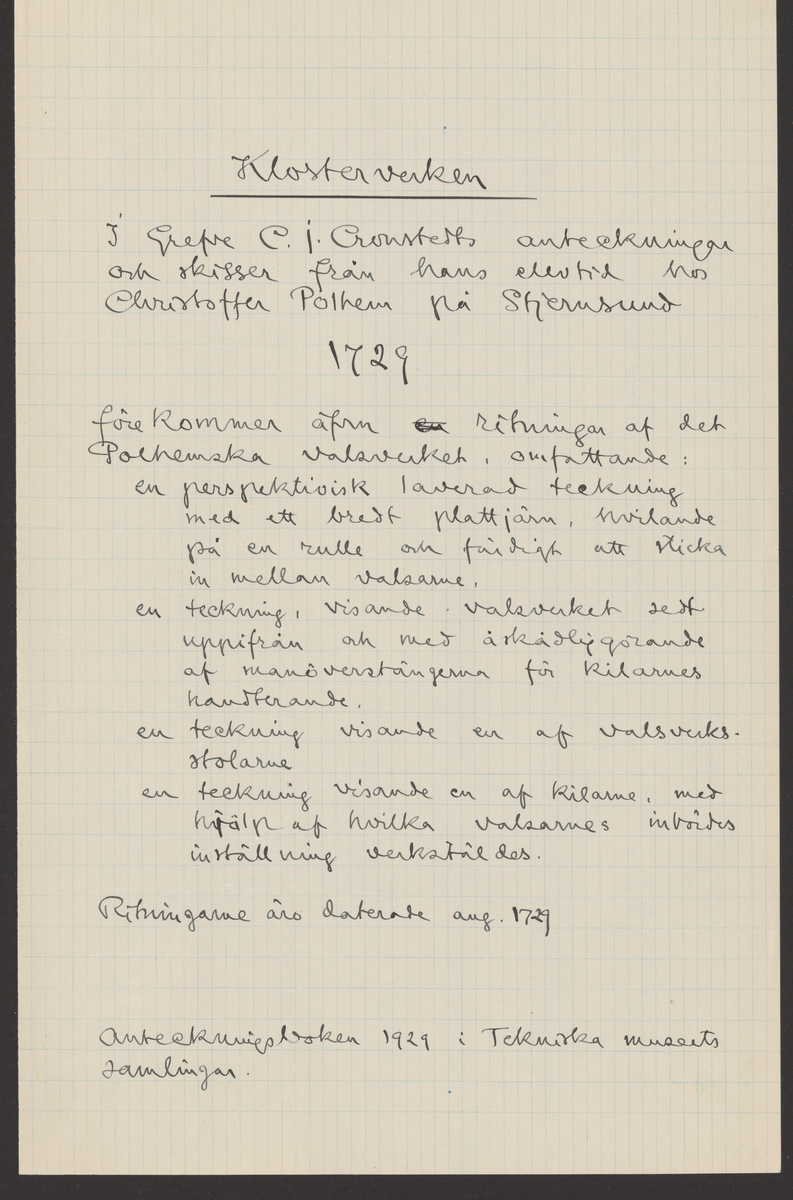 Klosterverken
I Grefve C. J. Cronstedts anteckningar
och skisser från hans elevtid hos
Christoffer Polhem på Stjernsund
1729
förekommer äfvn en ritningar af det
Polhemska valsverket, omfattande:
en perspektivisk laverad teckning
med ett bredt plattjärn, hvilande
på en rulle och färdigt att sticka
in mellan valsarne,
en teckning, visande valsverket sedt
uppifrån och med åskådliggörande
af manöverstängerna för kilarnes
handterande.
en teckning visande en af valsverks-
stolarne
en teckning visande en af kilarne, med
hjälp af hvilka valsarnes inbördes
inställning verkstäldes.
Ritningarne äro daterade aug. 1729
Anteckningsboken 1929 i Tekniska museets
samlingar.